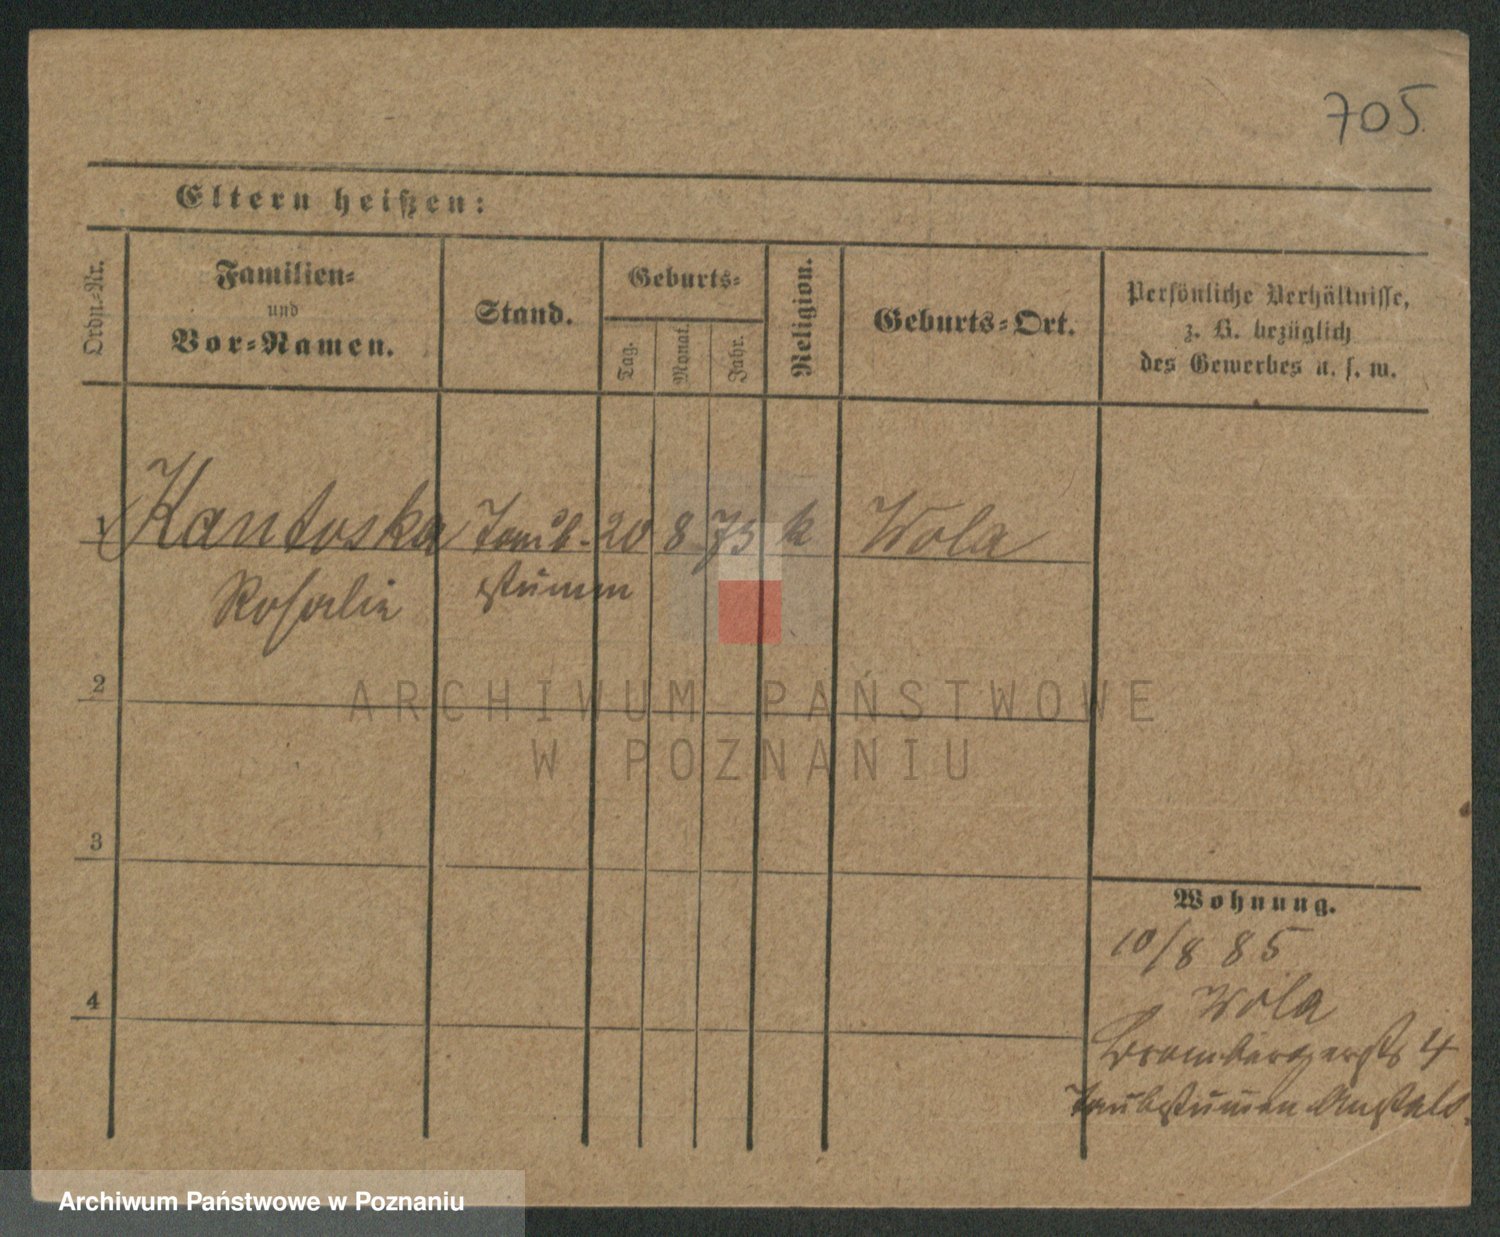 705.
Eltern heißen:
Ordn.-Nr.
Familien-
und
Vor-Namen.
Stand.
Geburts-
Tag.
Monat.
Jahr.
Religion.
Geburts-Ort.
Persönliche Verhältnisse,
z. B. bezüglich
des Gewerbes u. s. w.
1 Kantoska Taub- 20 8 75 k Wola
Rosalie stumm
2
3
4
Wohnung.
10/8 85
Wola
Brombergerstr 4
Taubstummen Anstalt.
ARCHIWUM PAŃSTWOWE
W POZNANIU
Archiwum Państwowe w Poznaniu